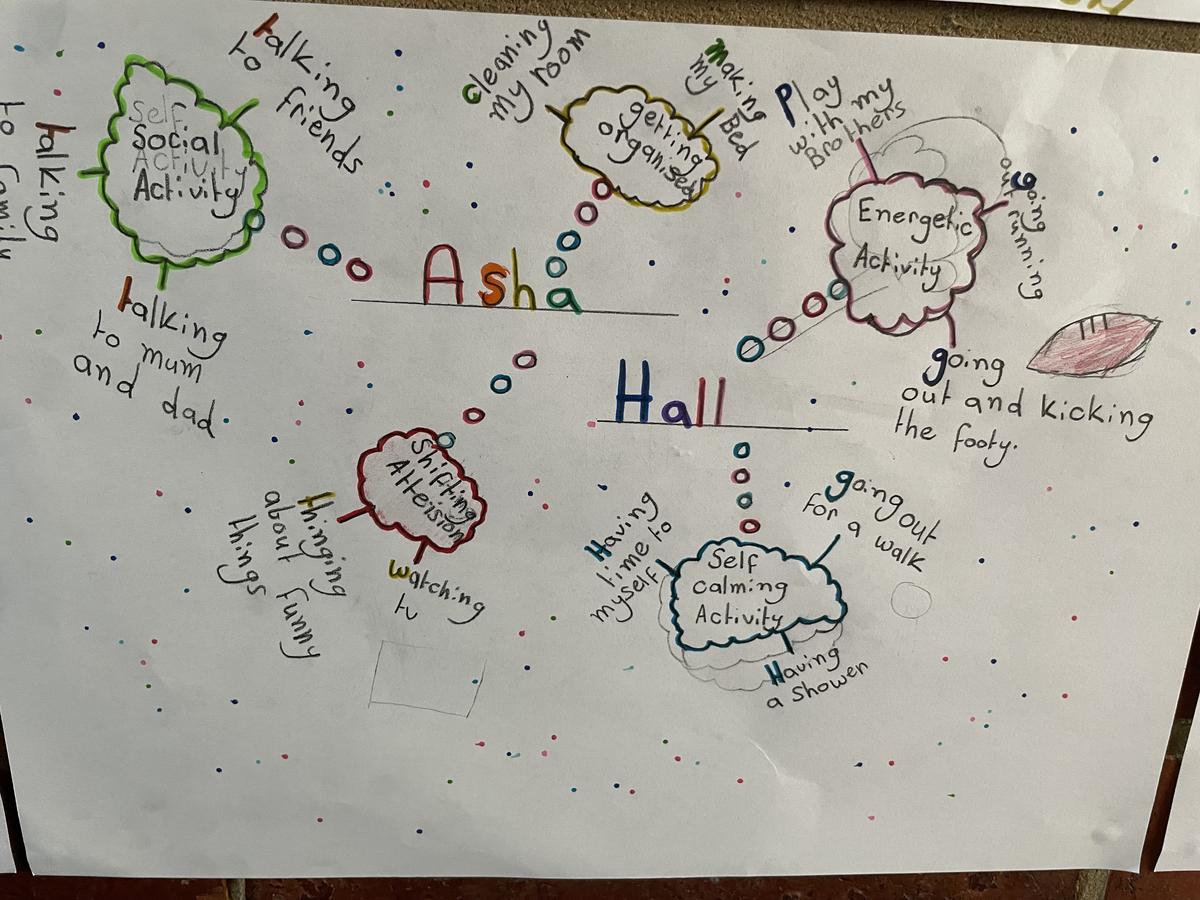 Asha
Hall
Self
Social
Activity
Activity
talking
to
friends
talking
to family
talking
to mum
and dad.
getting
organised
cleaning
my room
making
my
Bed
Energetic
Activity
Play
with my
Brothers
going
out running
going
out and kicking
the footy.
Shifting
Atteision
thinging
about funny
things
watching
tv
Self
calming
Activity
Having
time to
myself
going out
for a walk
Having
a shower